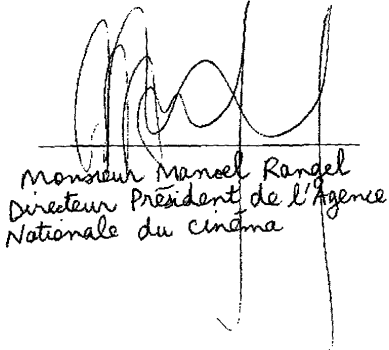 Monsieur Manoel Rangel
Directeur Président de l'Agence
Nationale du cinéma